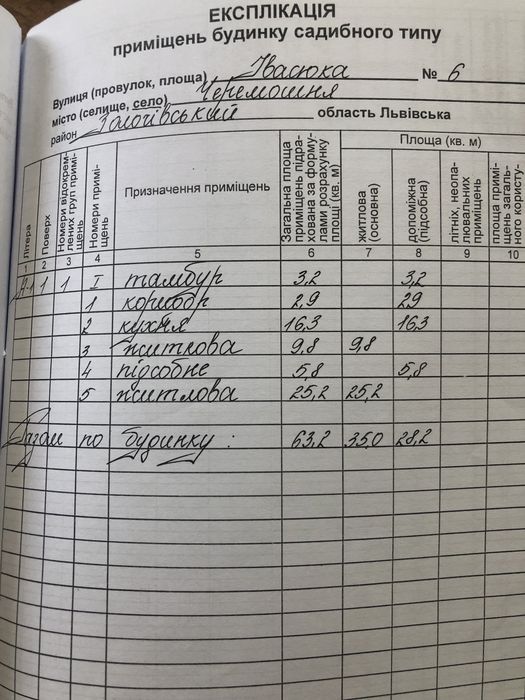 ЕКСПЛІКАЦІЯ
приміщень будинку садибного типу
Вулиця (провулок, площа) Івасюка № 6
місто (селище, село) Черемошня
район Золочівський область Львівська
Літера
Поверх
Номери відокрем-
лених груп примі-
щень
Номери примі-
щень
Призначення приміщень
Загальна площа
приміщень підра-
хована за форму-
лами розрахунку
площі (кв. м)
Площа (кв. м)
житлова
(основна)
допоміжна
(підсобна)
літніх, неопа-
лювальних
приміщень
площа примі-
щень загаль-
ного користу-
1 2 3 4 5 6 7 8 9 10
А-1 1 1 I тамбур 3,2 3,2
1 коридор 2,9 2,9
2 кухня 16,3 16,3
3 житлова 9,8 9,8
4 підсобне 5,8 5,8
5 житлова 25,2 25,2
Разом по будинку: 63,2 35,0 28,2